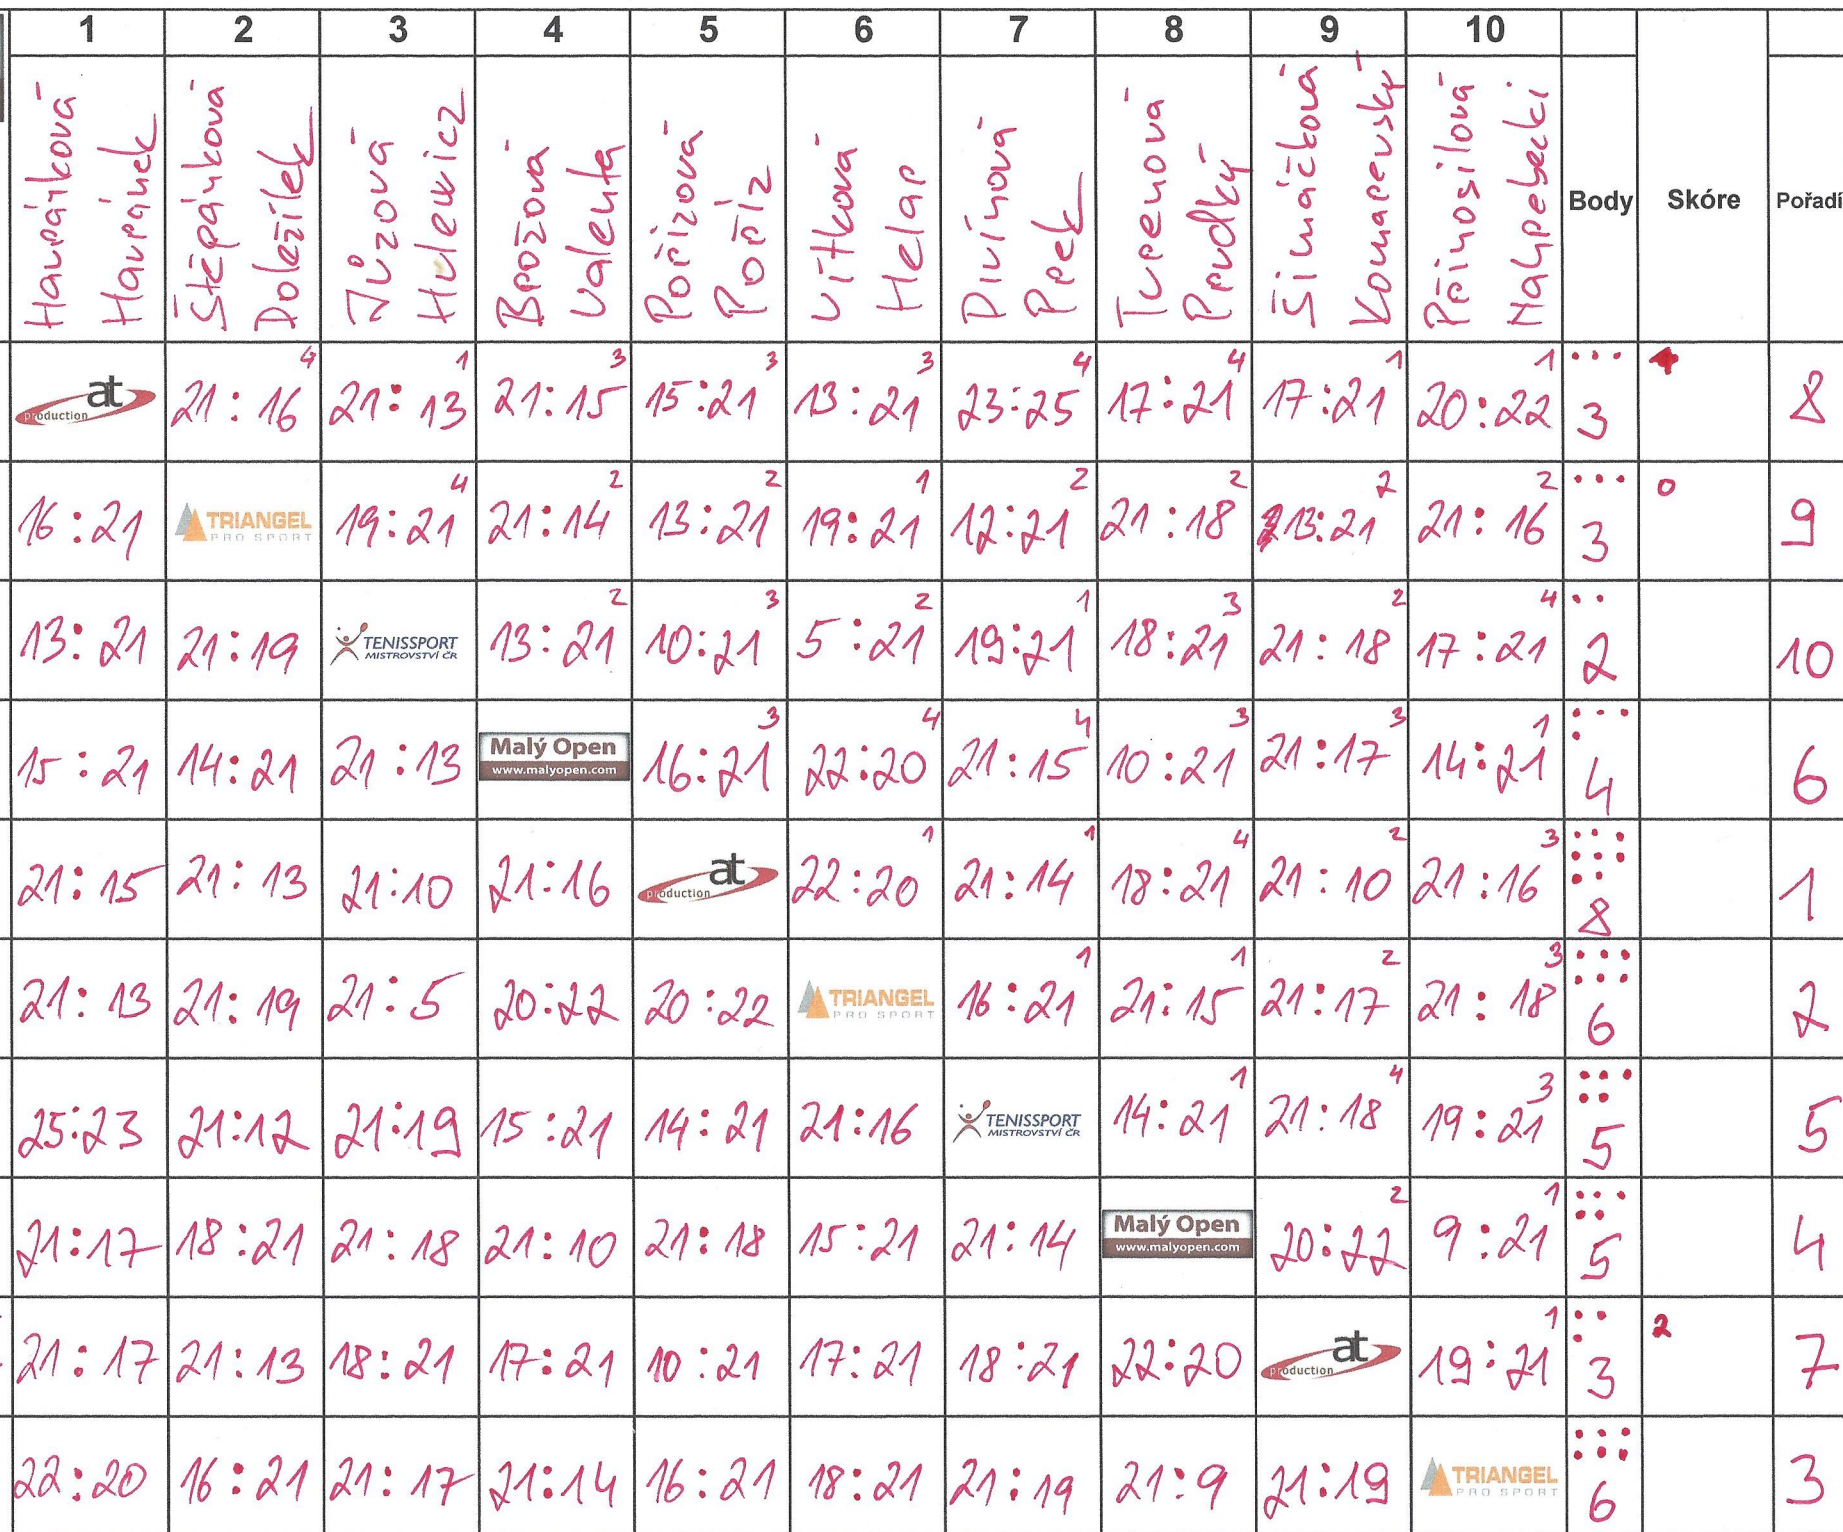 1 2 3 4 5 6 7 8 9 10
Havránková Havránek
Štěpánková Doležílek
Jůzová Hulewicz
Brožová Valenta
Pořízová Poříz
Vítková Helar
Divínová Prek
Turenová Prudký
Šimáčková Komarevský
Přinosilová
Body Skóre Pořadí
at production 21:16 4 21:13 1 21:15 3 15:21 3 13:21 3 23:25 4 17:21 4 17:21 1 20:22 1 3 8
16:21 TRIANGEL PRO SPORT 19:21 4 21:14 2 13:21 2 19:21 1 12:21 2 21:18 2 13:21 2 21:16 2 3 0 9
13:21 21:19 TENISSPORT MISTROVSTVÍ ČR 13:21 2 10:21 3 5:21 2 19:21 1 18:21 3 21:18 2 17:21 4 2 10
15:21 14:21 21:13 Malý Open www.malyopen.com 16:21 3 22:20 4 21:15 4 10:21 3 21:17 3 14:21 1 4 6
21:15 21:13 21:10 21:16 at production 22:20 1 21:14 1 18:21 4 21:10 2 21:16 3 8 1
21:13 21:19 21:5 20:22 20:22 TRIANGEL PRO SPORT 16:21 1 21:15 1 21:17 2 21:18 3 6 2
25:23 21:12 21:19 15:21 14:21 21:16 TENISSPORT MISTROVSTVÍ ČR 14:21 1 21:18 4 19:21 3 5 5
21:17 18:21 21:18 21:10 21:18 15:21 21:14 Malý Open www.malyopen.com 20:22 2 9:21 1 5 4
21:17 21:13 18:21 17:21 10:21 17:21 18:21 22:20 at production 19:21 1 3 2 7
22:20 16:21 21:17 21:14 16:21 18:21 21:19 21:9 21:19 TRIANGEL PRO SPORT 6 3